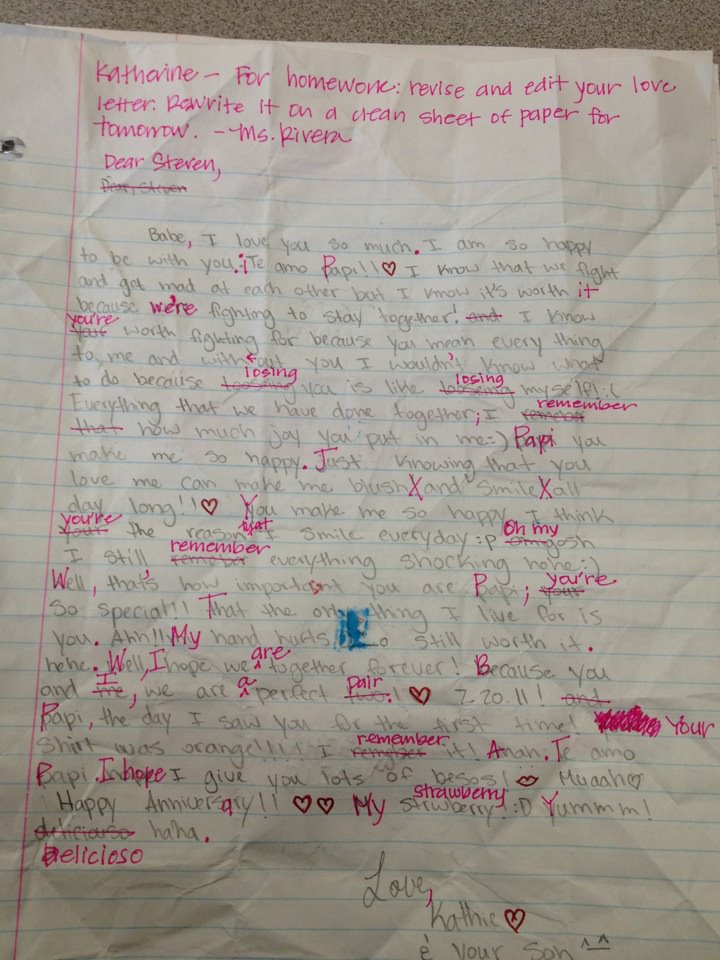 Katherine - For homework: revise and edit your love
letter. Rewrite it on a clean sheet of paper for
tomorrow. - Ms. Rivera
Dear Steven,
Dear, Steven
Babe, I love you so much. I am so happy
to be with you. ¡Te amo Papi!! ♡ I know that we fight
and get mad at each other but I know it's worth it
because we're fighting to stay together! and I know
you're
your worth fighting for because you mean every thing
to me and without you I wouldn't know what
losing losing
to do because looseing you is like looseing myself! :(
Everything that we have done together; I remember
that how much joy you put in me :) Papi you
make me so happy. Just knowing that you
love me can make me blush and smile all
day long!! ♡ You make me so happy I think
you're that oh my
your the reason I smile everyday :p omgosh
remember
I still, everything shocking hehe :)
Well, that's how important you are Papi; you're
your
So special!!! That the only thing I live for is
you. Ahh!! My hand hurts still worth it.
hehe. Well, I hope we are together forever! Because you
I a pair
and me, we are perfect ! ♡ 7.20.11! and
Papi, the day I saw you for the first time! Your
remember
Shirt was orange!!!!! I it! Aman. Te amo
Papi. I hope I give you lots of besos! Muaah ♡
strawberry
Happy Anniversary!! ♡♡ My struwberry! :D Yummm!
deliciouso haha.
Delicioso
Love,
Kathie ♡
& your son ^^